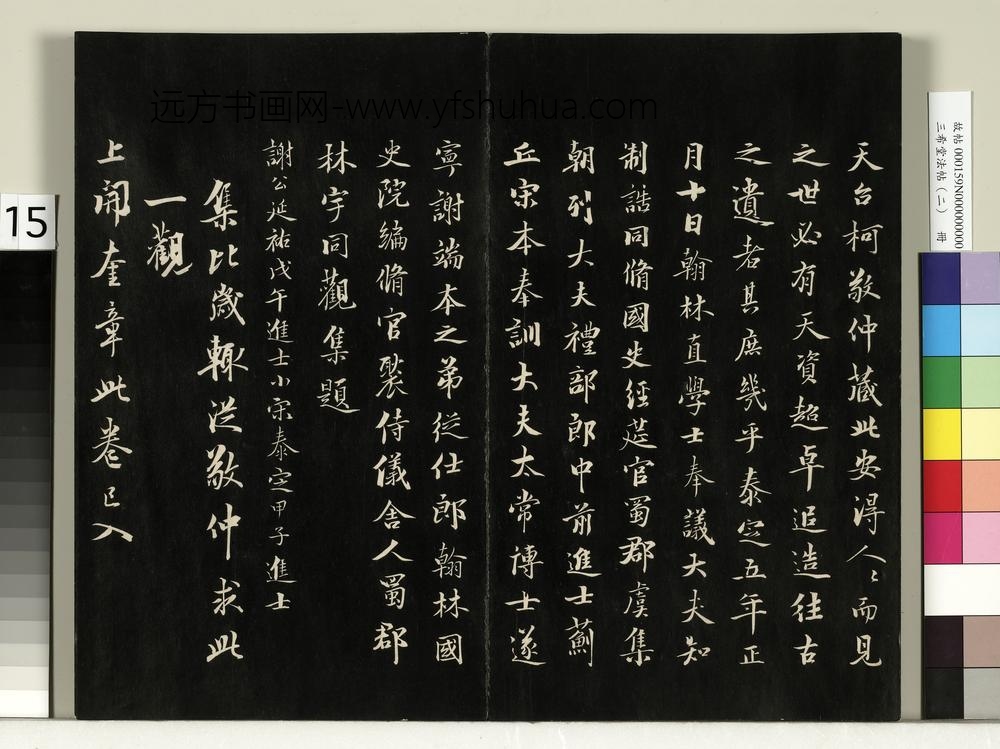 远方书画网-www.yfshuhua.com
天台柯敬仲藏此安得人〻而見
之世必有天資超卓追造往古
之遺者其庶幾乎泰定五年正
月十日翰林直學士奉議大夫知
制誥同脩國史經筵官蜀郡虞集
朝列大夫禮部郎中前進士薊
丘宋本奉訓大夫太常博士遂
寧謝端本之弟從仕郎翰林國
史院編脩官褧侍儀舍人蜀郡
林宇同觀集題
謝公延祐戊午進士小宋泰定甲子進士
集比歲輒從敬仲求此
一觀
上開奎章此卷已入
故帖 000159N000000000
三希堂法帖(二) 冊
15